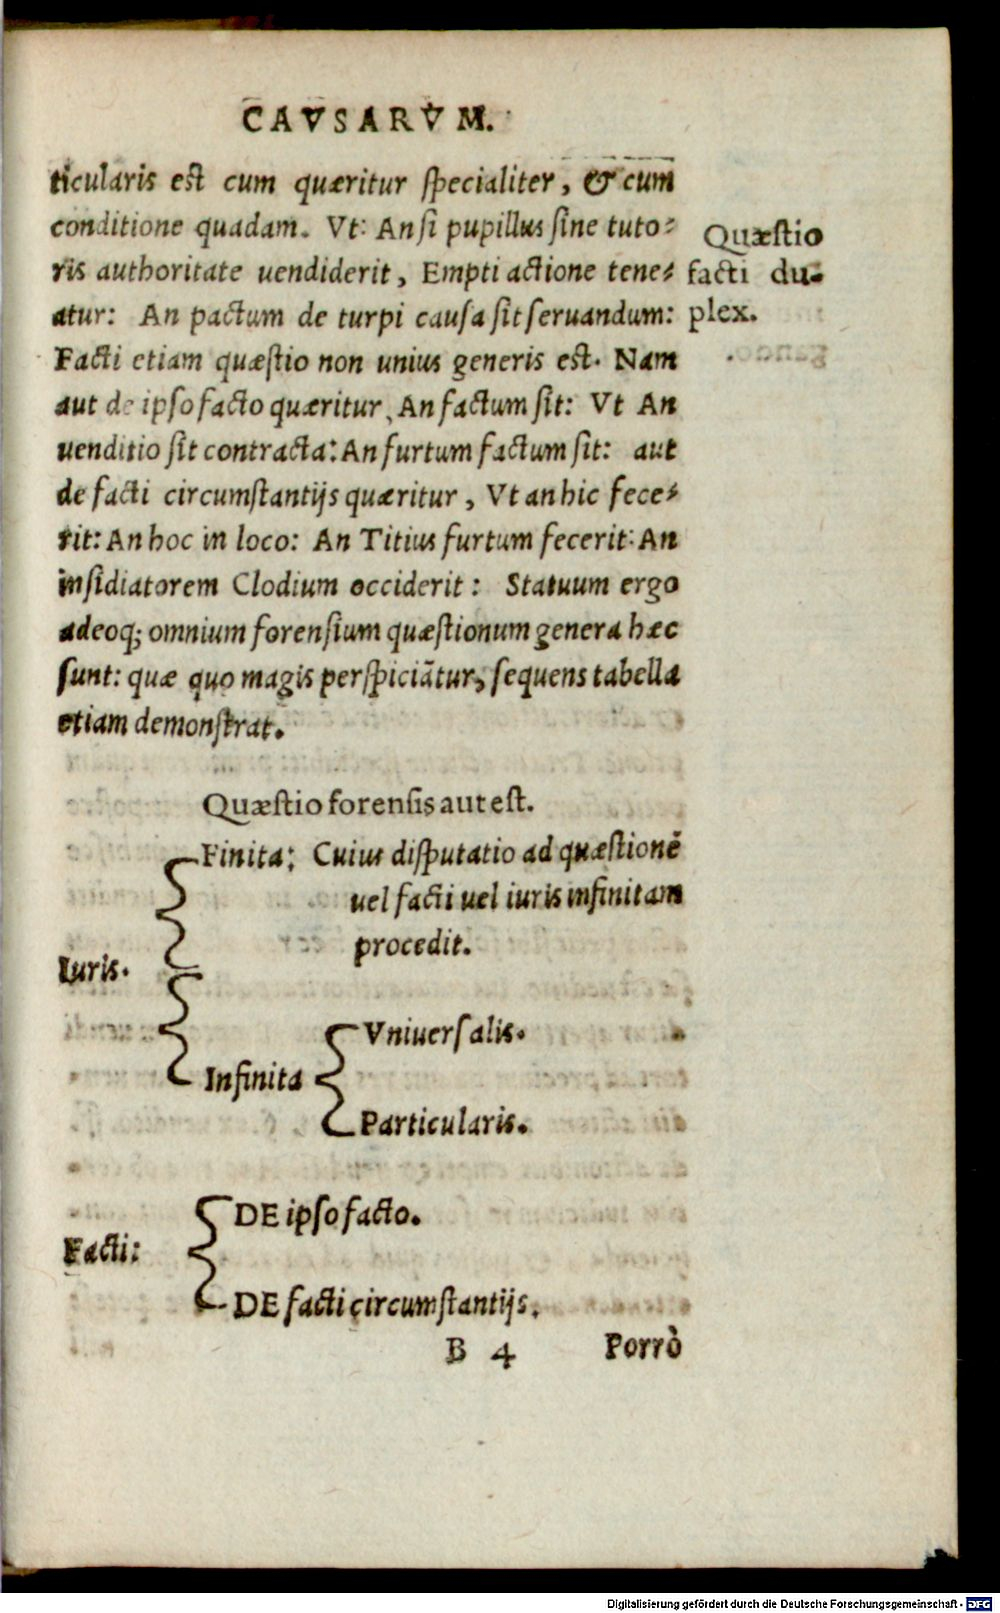 CAVSARVM.
ticularis est cum quæritur specialiter, & cum
conditione quadam. Vt: An si pupillus sine tuto-
ris authoritate uendiderit, Empti actione tene-
atur: An pactum de turpi causa sit seruandum:
Facti etiam quæstio non unius generis est. Nam
aut de ipso facto quæritur, An factum sit: Vt An
uenditio sit contracta: An furtum factum sit: aut
de facti circumstantijs quæritur, Vt an hic fece-
rit: An hoc in loco: An Titius furtum fecerit: An
insidiatorem Clodium occiderit: Statuum ergo
adeoq; omnium forensium quæstionum genera hæc
sunt: quæ quo magis perspiciātur, sequens tabella
etiam demonstrat.
Quæstio
facti du-
plex.
Quæstio forensis aut est.
Iuris.
Finita: Cuius disputatio ad quæstionē
uel facti uel iuris infinitam
procedit.
Infinita
Vniuersalis.
Particularis.
Facti:
DE ipso facto.
DE facti circumstantijs.
B 4 Porrò
Digitalisierung gefördert durch die Deutsche Forschungsgemeinschaft - DFG